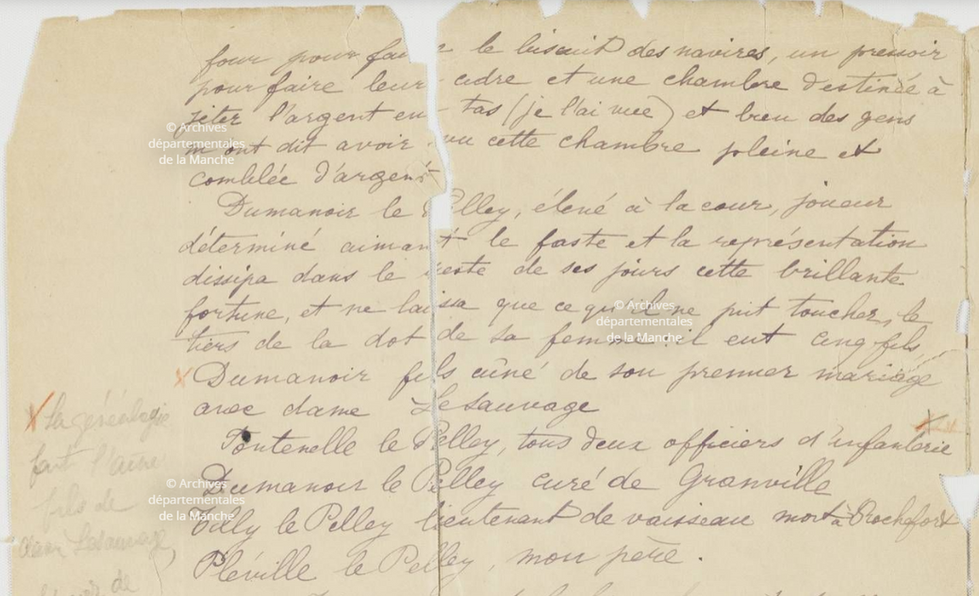 four pour faire le biscuit des navires, un pressoir
pour faire leur cidre et une chambre destinée à
jeter l'argent en tas (je l'ai vue) et bien des gens
m'ont dit avoir vu cette chambre pleine et
comblée d'argent
Dumanoir le Pelley, élevé à la cour, joueur
déterminé aimant le faste et la représentation
dissipa dans le reste de ses jours cette brillante
fortune, et ne laissa que ce qu'il ne put toucher, le
tiers de la dot de sa femme. il eut cinq fils,
x Dumanoir fils aîné de son premier mariage
avec dame Lesauvage
Fontenelle le Pelley, tous deux officiers d'infanterie
Dumanoir le Pelley curé de Granville
Pilly le Pelley lieutenant de vaisseau mort à Rochefort
Pléville le Pelley, mon père.
x La généalogie
fait l'aîné
fils de
Lesauvage,
de
© Archives
départementales
de la Manche
© Archives
départementales
de la Manche
© Archives
départementales
de la Manche